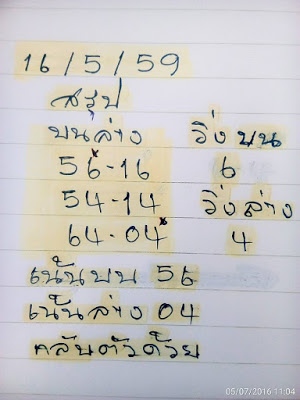 16/5/59
สรุป
บนล่าง วิ่งบน
56-16 6
54-14 วิ่งล่าง
64-04 4
เน้นบน 56
เน้นล่าง 04
กลับตัวด้วย
05/07/2016 11:04